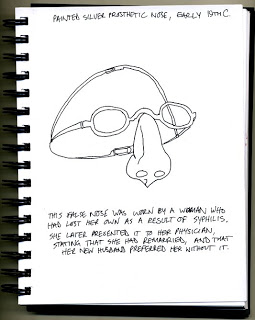 PAINTED SILVER PROSTHETIC NOSE, EARLY 19TH C.
THIS FALSE NOSE WAS WORN BY A WOMAN WHO
HAD LOST HER OWN AS A RESULT OF SYPHILIS.
SHE LATER PRESENTED IT TO HER PHYSICIAN,
STATING THAT SHE HAD REMARRIED, AND THAT
HER NEW HUSBAND PREFERRED HER WITHOUT IT.